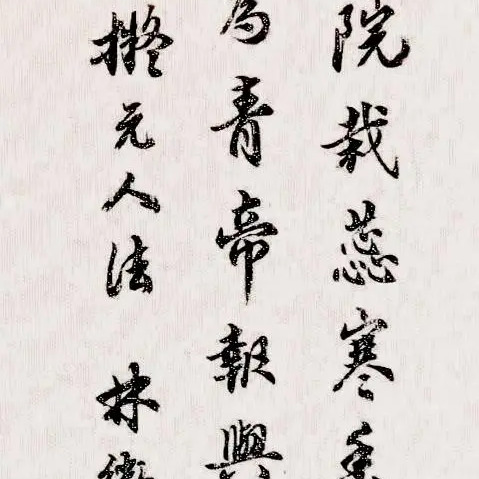 院栽蕊寒
青帝報與
擬元人法 林